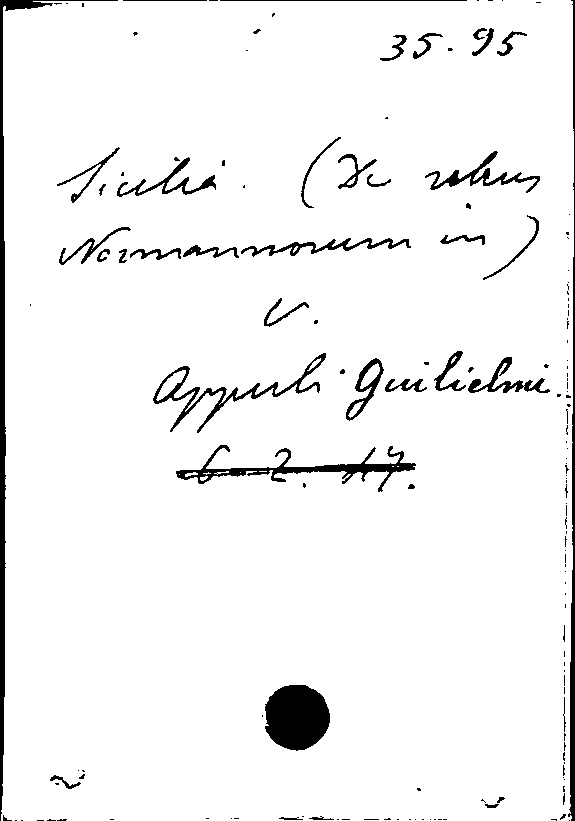 35.95
Sicilia. (De rebus
Normannorum in)
v.
Appuli Guilielmi.
6 2. 17.